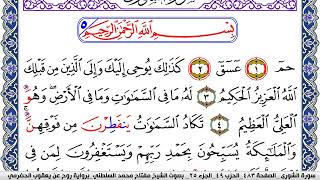 بِسْمِ اللَّهِ الرَّحْمَٰنِ الرَّحِيمِ
حمٓ ١ عٓسٓقٓ ٢ كَذَٰلِكَ يُوحِىٓ إِلَيْكَ وَإِلَى ٱلَّذِينَ مِن قَبْلِكَ
ٱللَّهُ ٱلْعَزِيزُ ٱلْحَكِيمُ ٣ لَهُۥ مَا فِى ٱلسَّمَٰوَٰتِ وَمَا فِى ٱلْأَرْضِ وَهُوَ
ٱلْعَلِىُّ ٱلْعَظِيمُ ٤ تَكَادُ ٱلسَّمَٰوَٰتُ يَنفَطِرْنَ مِن فَوْقِهِنَّ
وَٱلْمَلَٰٓئِكَةُ يُسَبِّحُونَ بِحَمْدِ رَبِّهِمْ وَيَسْتَغْفِرُونَ لِمَن فِى
سورة الشورى الصفحة ٤٨٣ الحزب ٤٩ الجزء ٢٥ بصوت الشيخ مفتاح محمد السلطني برواية روح عن يعقوب الحضرمي